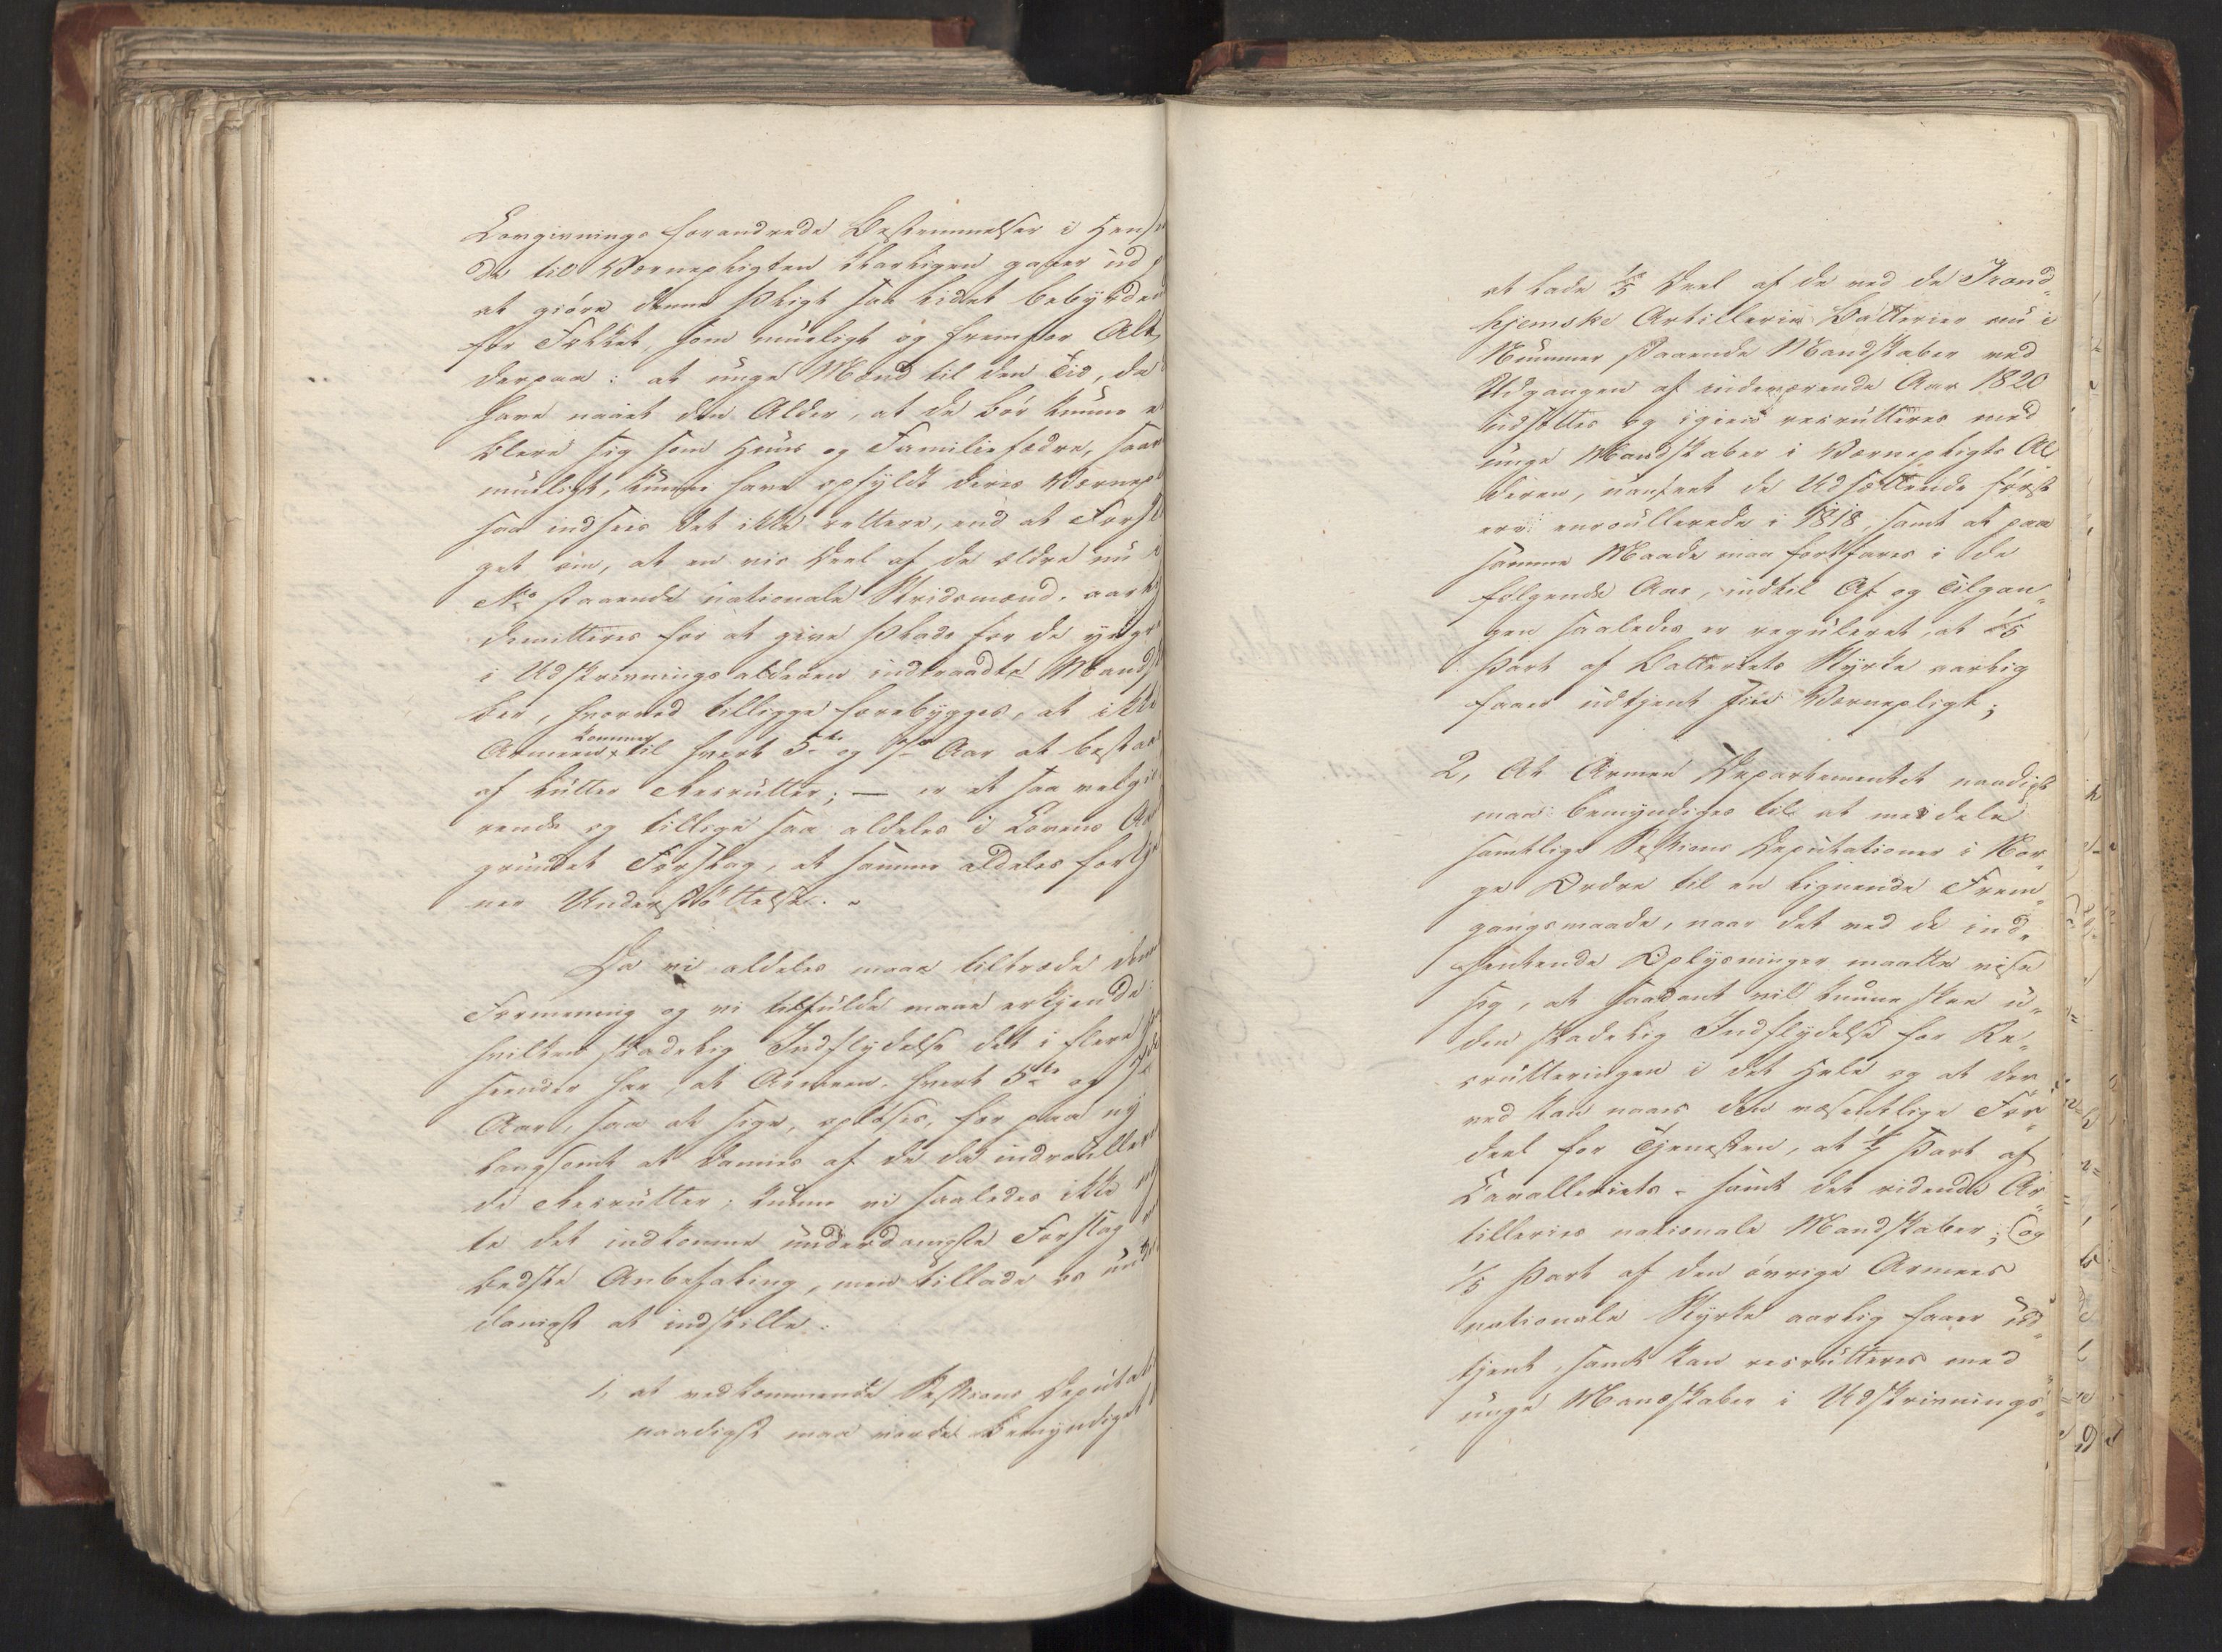 Lovgivnings forandrede Bestemmelser i Hense
de til Værnepligten klarligen gaaer ud p
at giøre denne Pligt saa lidet bebyrden
for Folket, som mueligt og fremfor Alt
derpaa: at unge Mænd til den Tid, de
have naaet den Alder, at de bør kunne e
blere sig som Huus og Familiefædre, saav
mueligt, kunne have opfyldt deres Værnepl
saa indsees det ikke rettere, end at Forsla
get om, at en vis Deel af de ældre nu i
No staaende nationale Stridsmænd, aarli
demitteres for at give Plads for de yngre
i Udskrivnings alderen indtraadte Mandska
ber, hvorved tilligge forebygges, at ikke
Armeen kommer til hvert 5te og 7de Aar at bestaae
af lutter Recrutter; — er et saa velgiø
rende og tillige saa aldeles i Lovens Aan
grundet Forslag, at samme aldeles fortje
ner Understøttelse. "
Da vi aldeles maae tiltræde denne
Formening og vi tilfulde maae erkjende
hvilken skadelig Indflydelse det i flere Hen
seender har, at Armeen, hvert 5te og 7de
Aar, saa at sige, opløses, for paa ny
langsomt at dannes af de da indroullere
de Recrutter; kunne vi saaledes ikke
te det indkomne underdanigste Forslag
bedste Anbefaling, men tillade os un
danigst at indstille:
1, at vedkommende Sessions Deputati
naadigst maa vorde bemyndiget t
at lade 1/5 Deel af de ved de Trond„
hjemske Artillerie Batterier nu i
Nummer staaende Mandskaber ved
Udgangen af indeværende Aar 1820
udsættes og igien recrutteres med
unge Mandskaber i Værnepligts Al„
deren, uanseet de Udsættende først
ere enroullerede i 1818, samt at paa
samme Maade maa fortfares i de
følgende Aar, indtil Af og Tilgan„
gen saaledes er reguleret, at 1/5
Part af Batteriets Styrke aarlig
faaer udtjent sin Værnepligt;
2, At Armee Departementet naadigst
maa bemyndiges til at meddele
samtlige Sessions Deputationer i Nor„
ge Ordre til en lignende Frem„
gangsmaade, naar det ved de ind„
hentende Oplysninger maatte vise
sig, at saadant vil kunne skee u„
den skadelig Indflydelse for Re„
crutteringen i det Hele og at der„
ved kan naaes den væsentlige For„
deel for Tjenesten, at 1/7 Part af
Cavalleriets - samt det ridende Ar„
tilleries nationale Mandskaber; og
1/5 Part af den øvrige Armees
nationale Styrke aarlig faaer ud„
tjent, samt kan recrutteres med
unge Mandskaber i Udskrivnings„